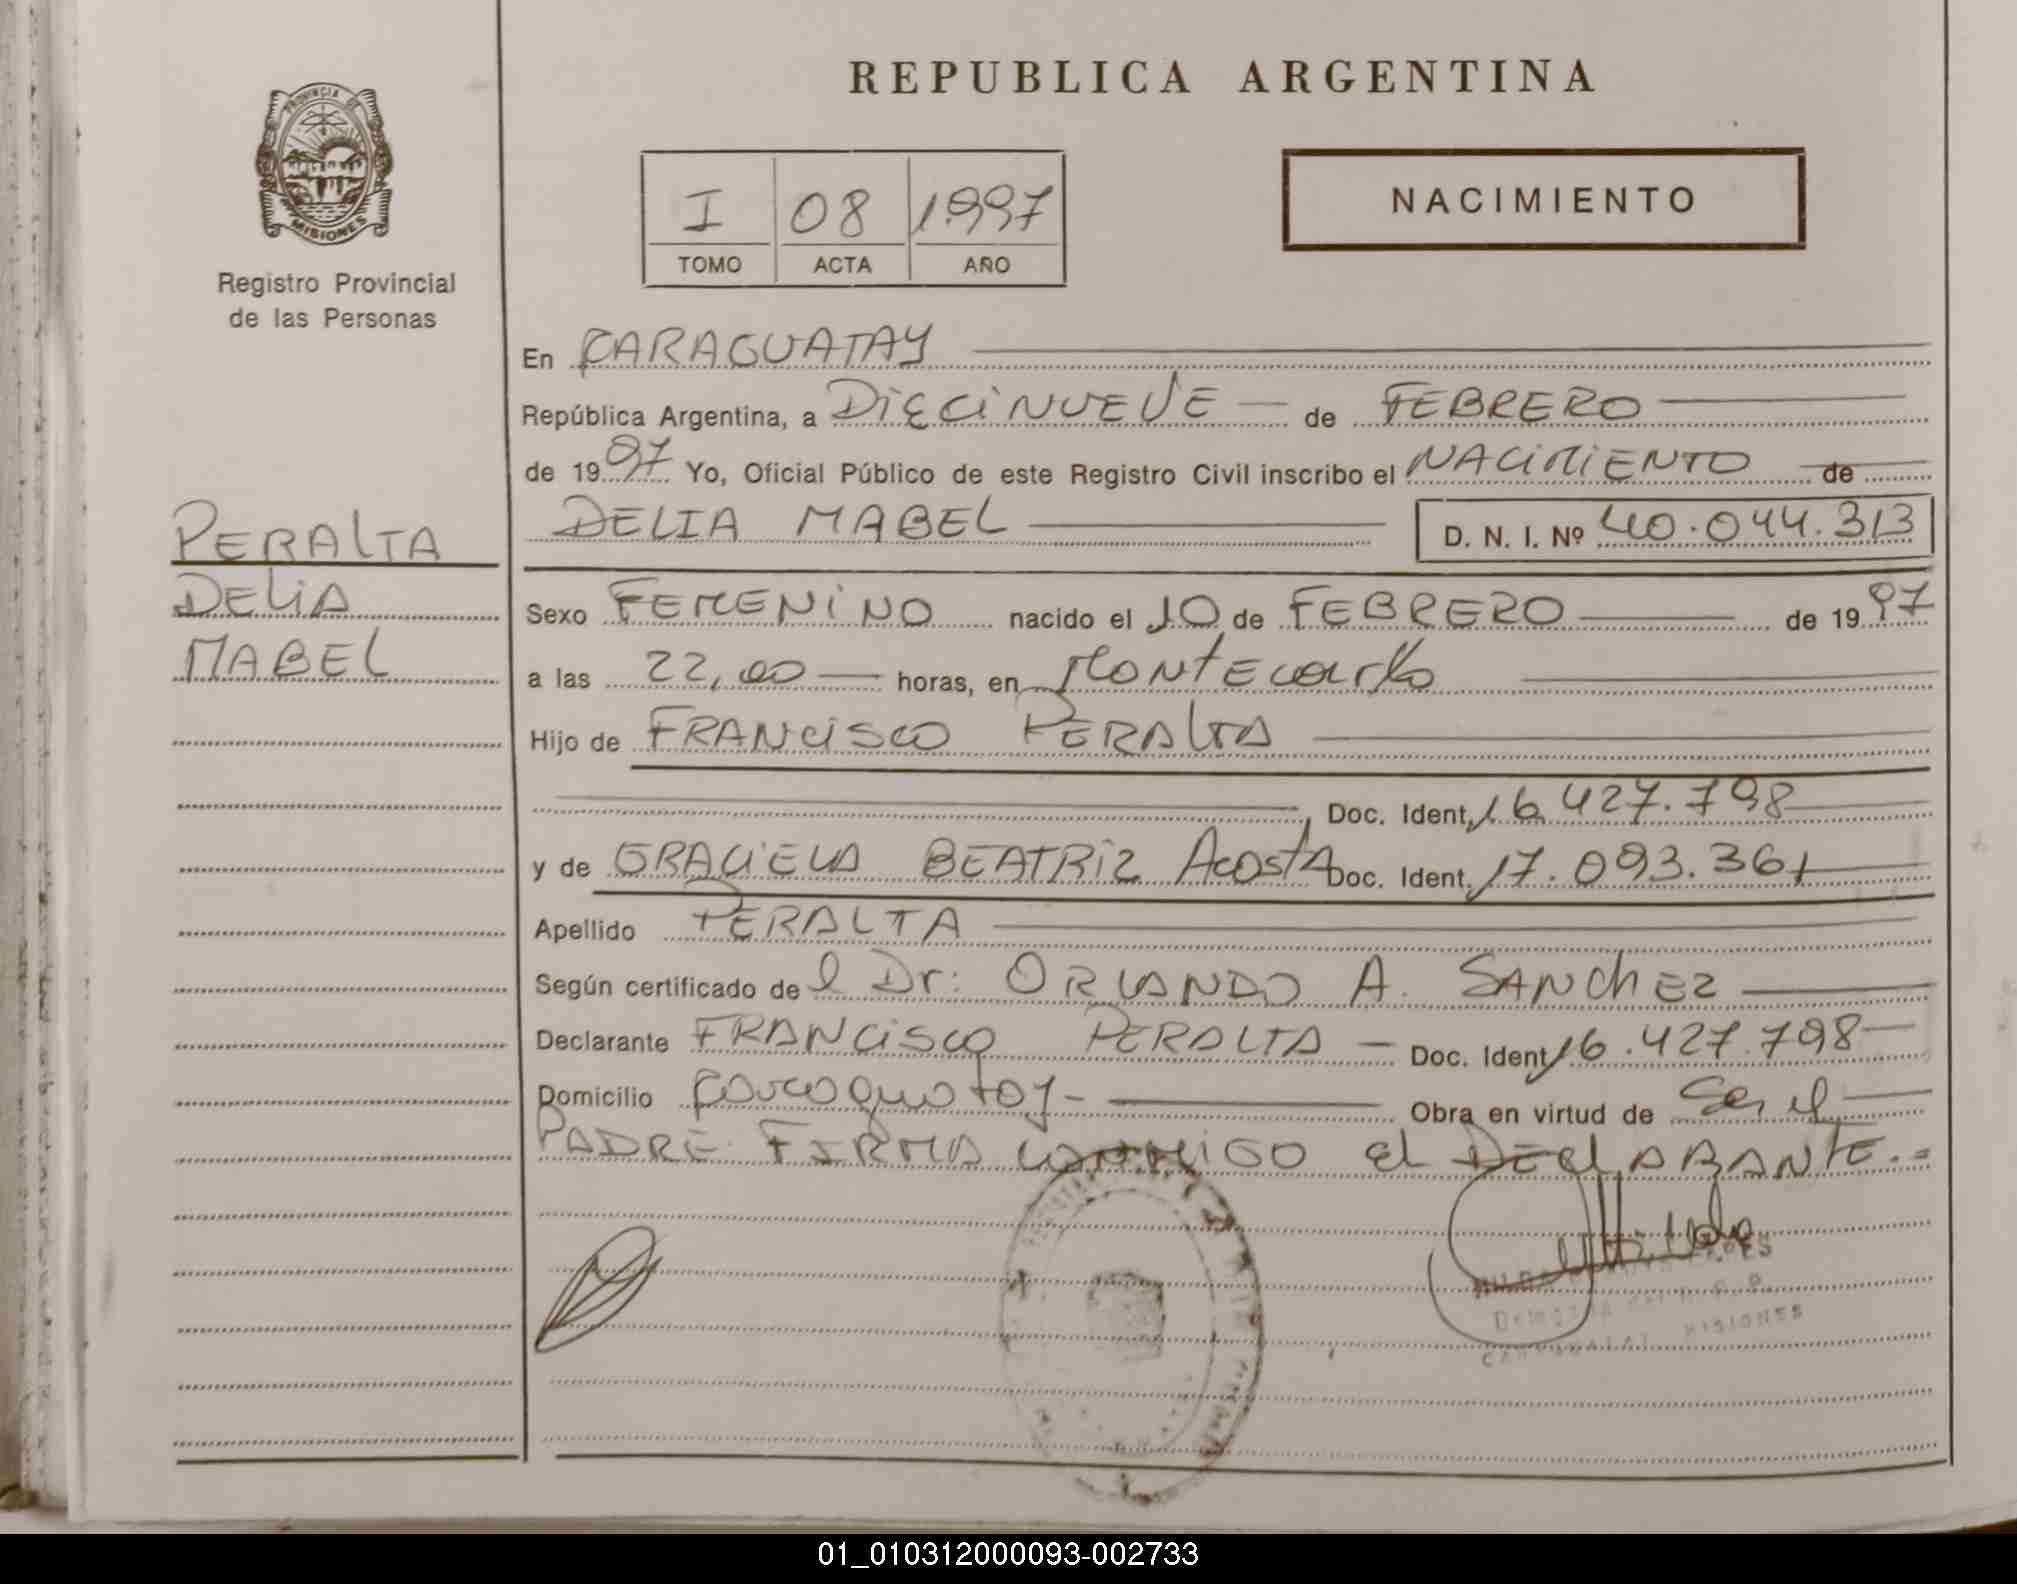 REPUBLICA ARGENTINA
PROVINCIA DE
MISIONES
Registro Provincial
de las Personas
I 08 1.997
TOMO ACTA AÑO
NACIMIENTO
En CARAGUATAY
República Argentina, a DIECINUEVE de FEBRERO
de 1997 Yo, Oficial Público de este Registro Civil inscribo el NACIMIENTO de
DELIA MABEL D. N. I. Nº 40.044.313
PERALTA
DELIA
MABEL
Sexo FEMENINO nacido el 10 de FEBRERO de 1997
a las 22,00 horas, en MONTECARLO
Hijo de FRANCISCO PERALTA
Doc. Ident. 16.427.798
y de GRACIELA BEATRIZ ACOSTA Doc. Ident. 17.093.361
Apellido PERALTA
Según certificado del Dr: ORLANDO A. SANCHEZ
Declarante FRANCISCO PERALTA Doc. Ident. 16.427.798
Domicilio Caraguatay- Obra en virtud de Ser el
PADRE FIRMA CONMIGO el DECLARANTE.=
MISIONES
01_010312000093-002733